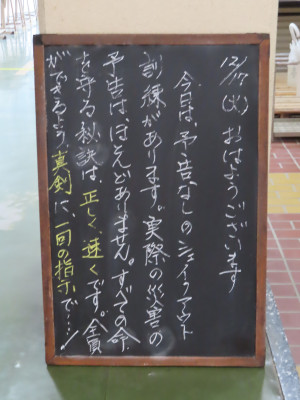 12/17(火)おはようございます
今日は、予告なしのシェイクアウト
訓練があります。実際の災害の
予告は、ほとんどありません。すべての命
を守る秘訣は、正しく、速くです。全員
ができるよう真剣に、一回の指示で…!